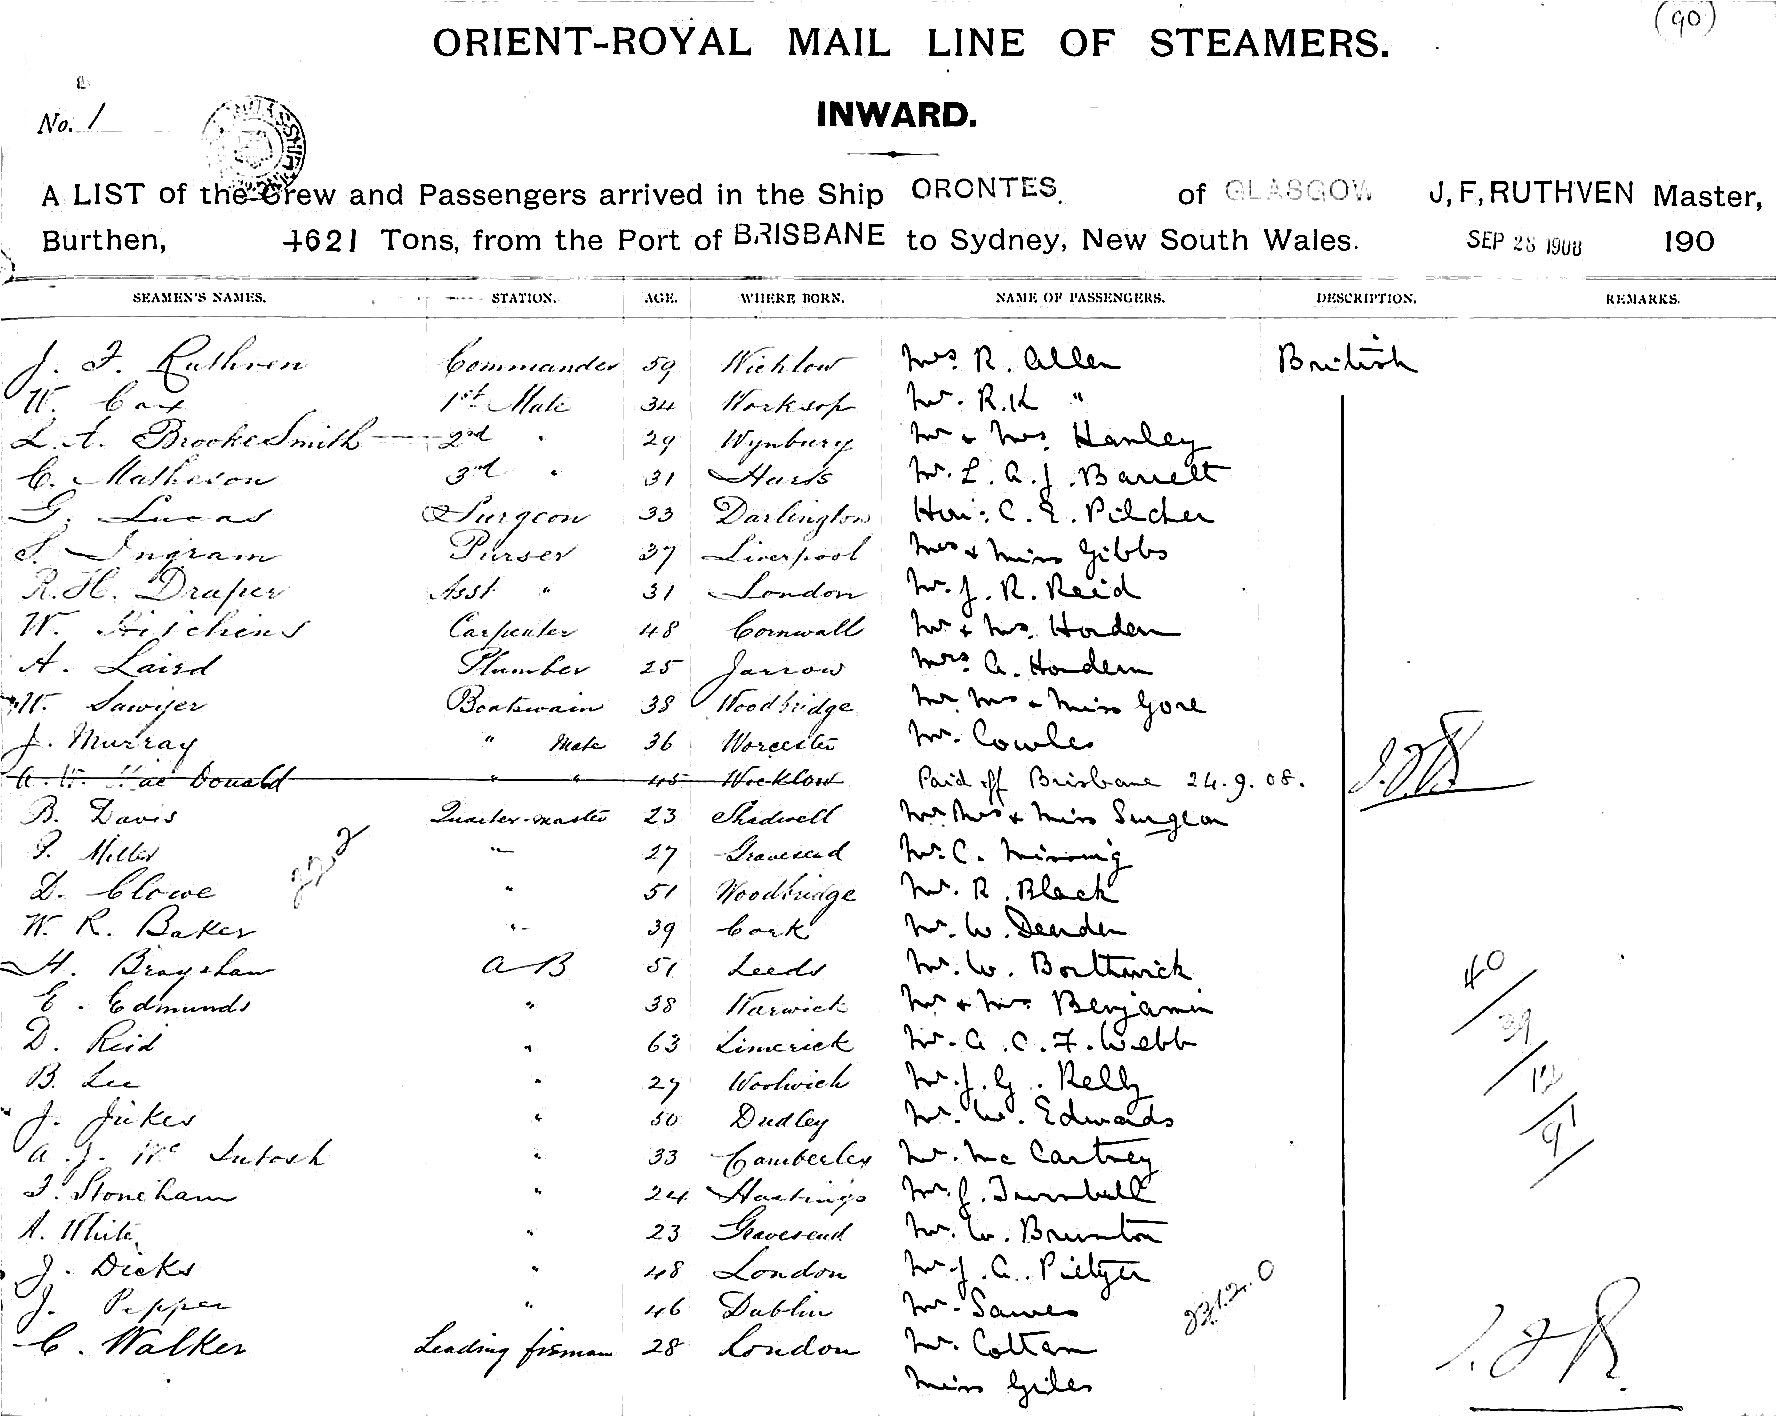 (90)
ORIENT-ROYAL MAIL LINE OF STEAMERS.
INWARD.
No. 1
A LIST of the Crew and Passengers arrived in the Ship ORONTES. of GLASGOW J, F, RUTHVEN Master,
Burthen, 4621 Tons, from the Port of BRISBANE to Sydney, New South Wales. SEP 28 1908 190
SEAMEN'S NAMES. STATION. AGE. WHERE BORN. NAME OF PASSENGERS. DESCRIPTION. REMARKS.
J. F. Ruthven Commander 59 Wicklow Mrs. R. Allen British
W. Cox 1st Mate 34 Worksop Mr. R.K "
L. A. Brooke Smith 2nd " 29 Wynbury Mr & Mrs. Hanley
C. Matheson 3rd " 31 Harris Mr. L. A. J. Barrett
G. Lucas Surgeon 33 Darlington Hon: C. E. Pilcher
S. Ingram Purser 37 Liverpool Mrs & Miss Gibbs
R. H. Draper Asst " 31 London Mr. J. R. Reid
W. Hitchens Carpenter 48 Cornwall Mr & Mrs. Hordern
A. Laird Plumber 25 Jarrow Mrs. A. Hordern
W. Sawyer Boatswain 38 Woodbridge Mr Mrs & Miss Gore
J. Murray " Mate 36 Worcester Mr. Cowles
A. W. Mac Donald " " 45 Wicklow Paid off Brisbane 24.9.08. J.F.R.
B. Davis Quarter-master 23 Shadwell Mr Mrs & Miss Surgeon
F. Miller " 27 Gravesend Mr. C.
D. Clowe " 51 Woodbridge Mr. R. Black
W. R. Baker " 39 Cork Mr. W.
H. Brayshaw A B 51 Leeds Mr. W. Borthwick
E. Edmunds " 38 Warwick Mr & Mrs Benjamin
D. Reid " 63 Limerick Mr. A. C. F. Webb
B. Lee " 27 Woolwich Mr. J. G. Kelly
J. Jukes " 50 Dudley Mr. W. Edwards
A. J. Mc Intosh " 33 Camberley Mr. Mc Cartney
F. Stoneham " 24 Hastings Mr. J. Turnbull
A. White " 23 Gravesend Mr. W. Brunton
J. Dicks " 48 London Mr J. A.
J. Pepper " 46 Dublin Mr.
C. Walker Leading fireman 28 London Mr. Cottam
Miss Giles
40/39/12/91
J. F. R.